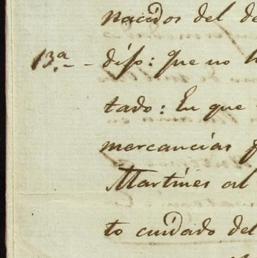 nacidos del de
13.ª - dijo: Que no h
tado: En que
mercancias
Martines al
to cuidado del